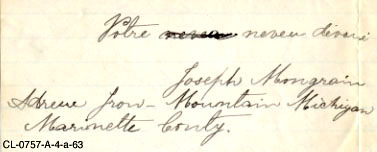 Votre neveu dévoué
Joseph Mongrain
Adresse Iron-Mountain Michigan
Marinette Conty.
CL-0757-A-4-a-63